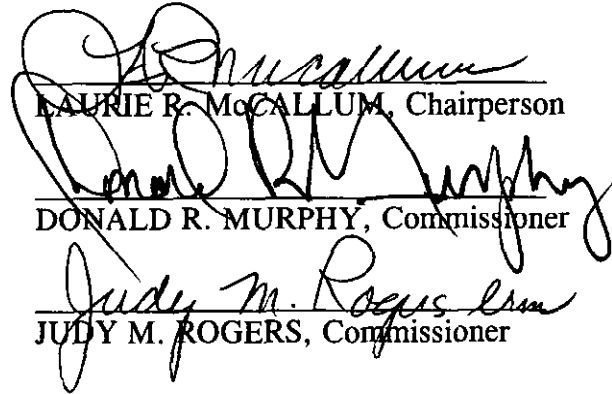 McCallum
LAURIE R. McCALLUM, Chairperson
Donald R. Murphy
DONALD R. MURPHY, Commissioner
Judy M. Rogers
JUDY M. ROGERS, Commissioner